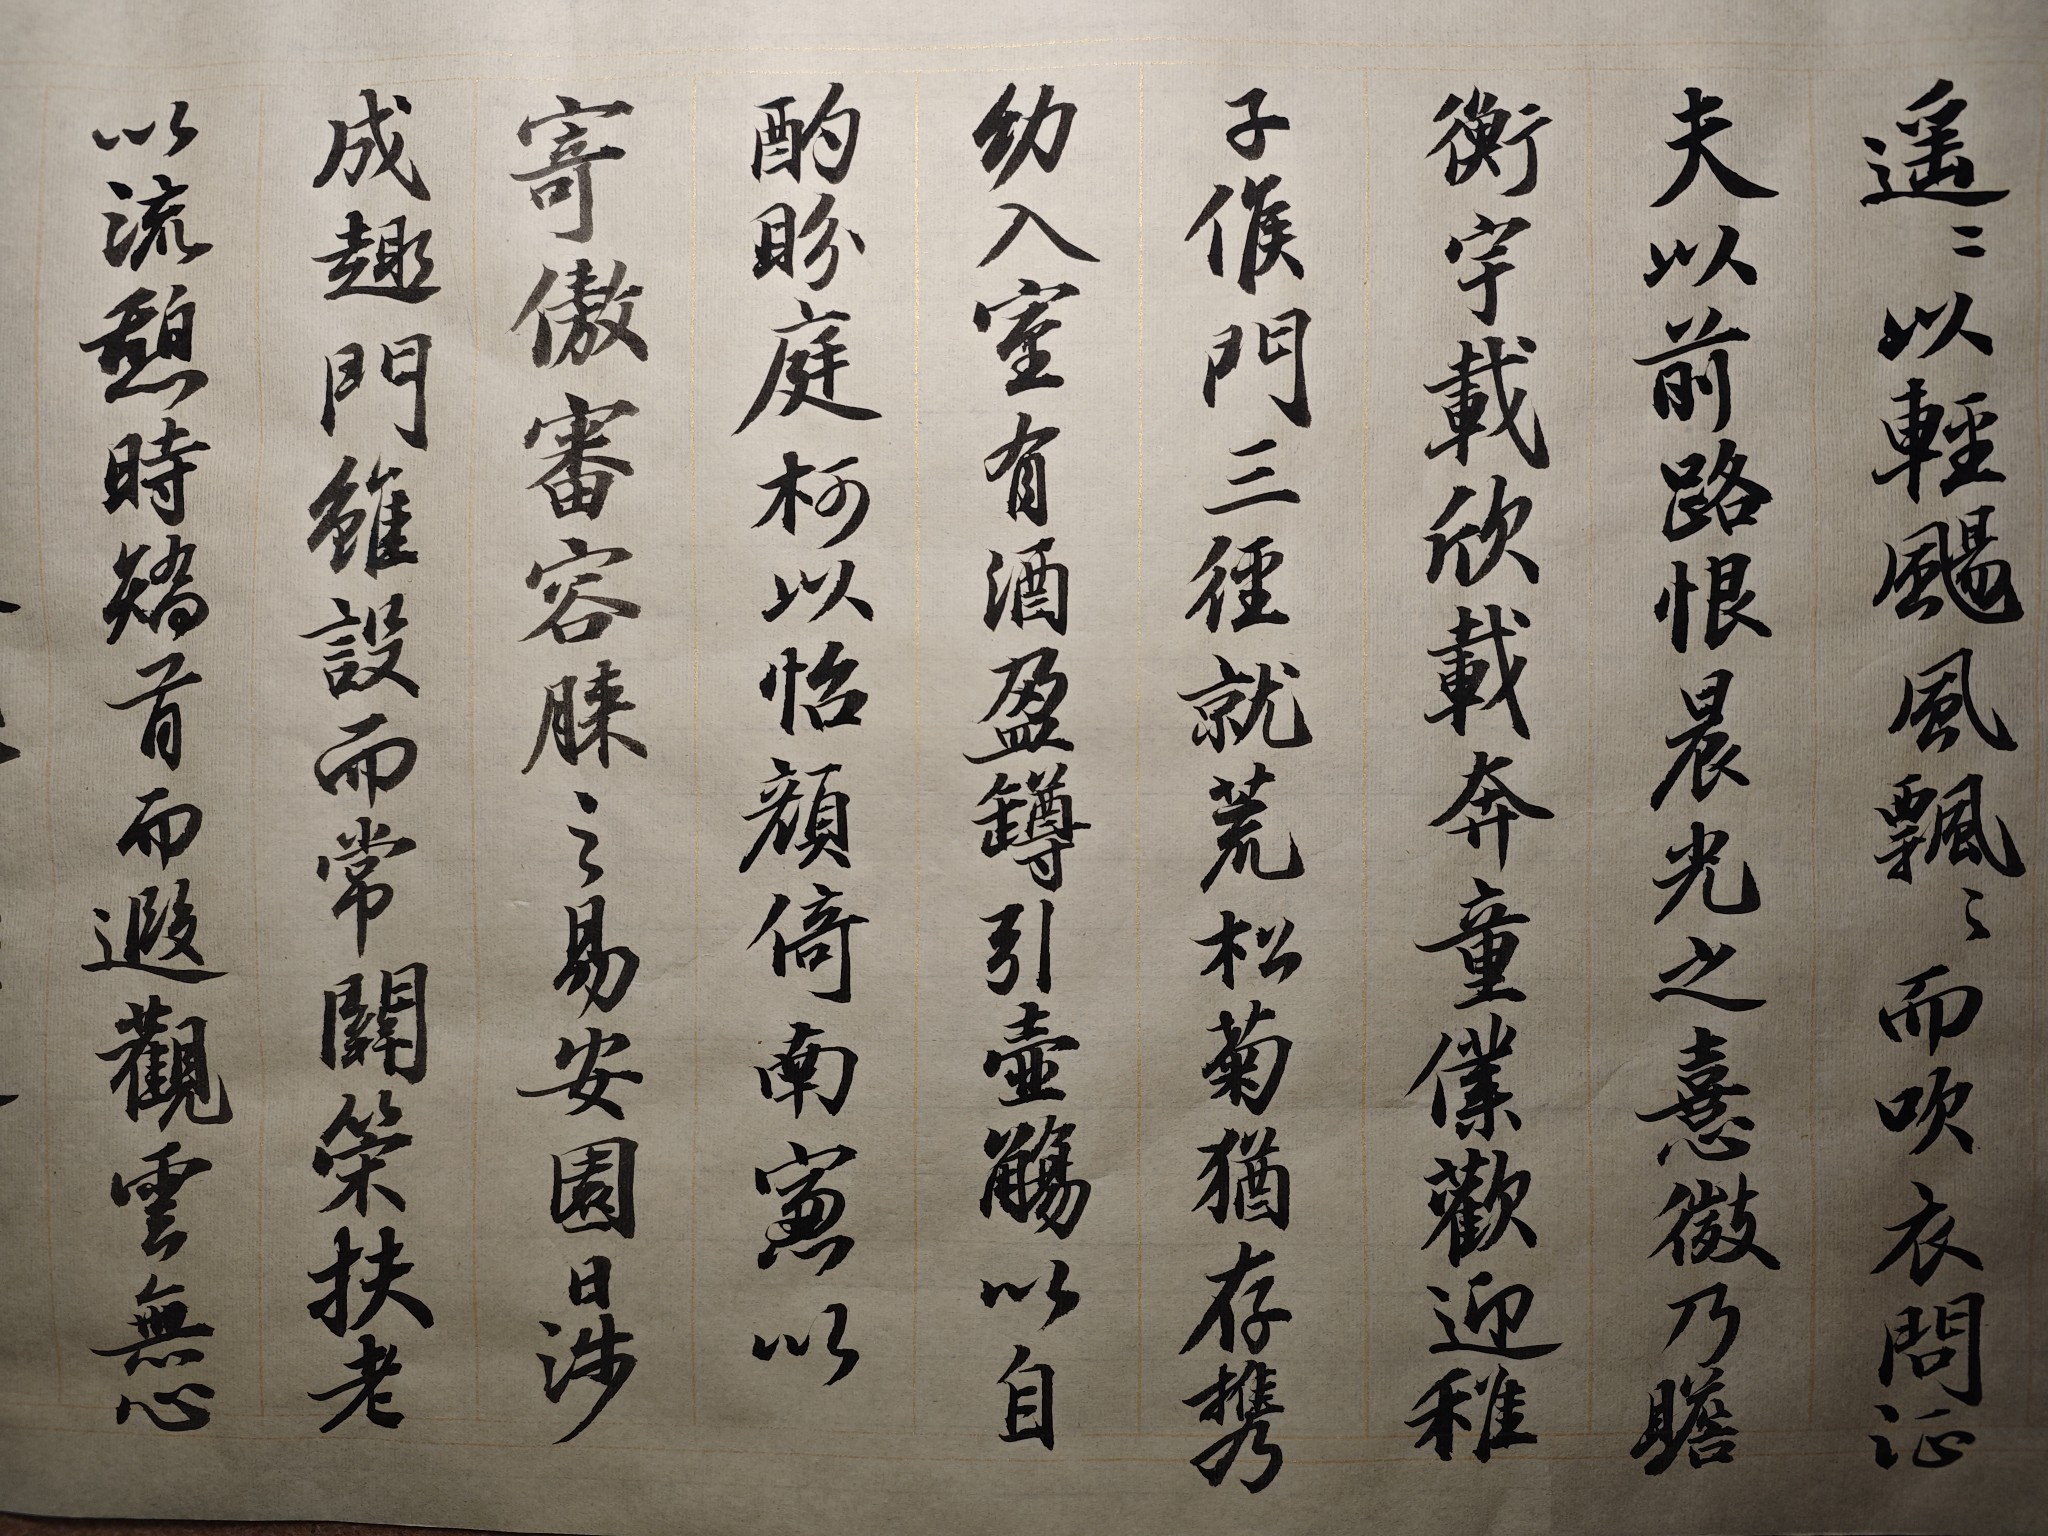 遥〻以輕颺風風飄〻而吹衣問征
夫以前路恨晨光之憙微乃瞻
衡宇載欣載奔童僕歡迎稚
子候門三徑就荒松菊猶存携
幼入室有酒盈罇引壷觴以自
酌眄庭柯以怡顔倚南窻以
寄傲審容膝之易安園日涉
成趣門雖設而常關策扶老
以流憩時矯首而遐觀雲無心